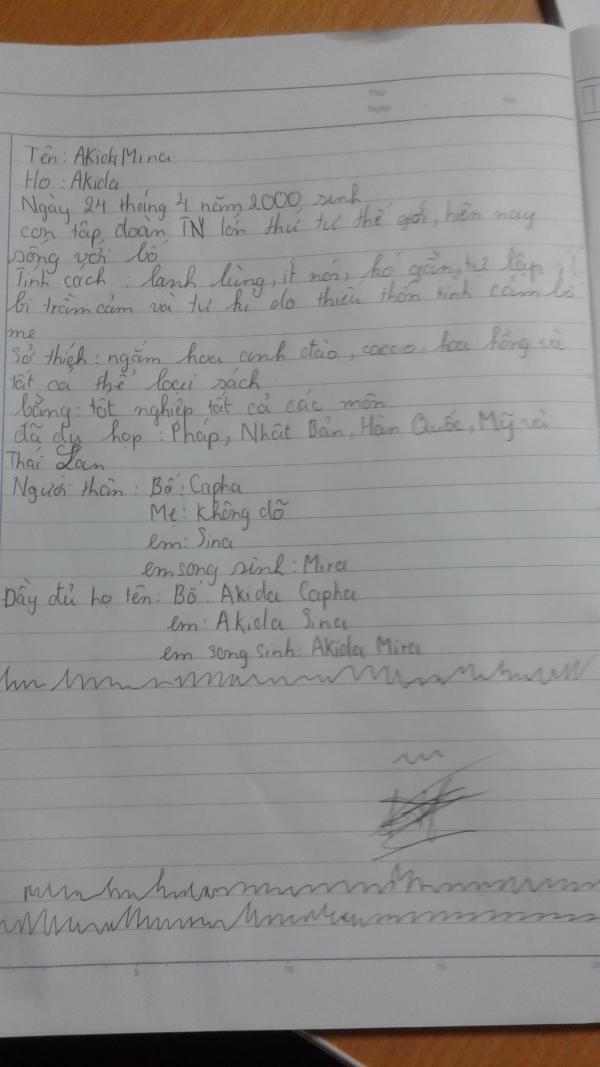 Thứ
Ngày
No.
Tên: Akida Mina
Họ: Akida
Ngày 24 tháng 4 năm 2000 sinh
con tập đoàn TN lớn thứ tư thế giới, hiện nay
sống với bố
Tính cách: lạnh lùng, ít nói, khó gần, tự lập,
bị trầm cảm và tự kỉ do thiếu thốn tình cảm bố
mẹ
Sở thích: ngắm hoa anh đào, cacao, hoa hồng và
tất cả thể loại sách
bằng: tốt nghiệp tất cả các môn
đã du họp: Pháp, Nhật Bản, Hàn Quốc, Mỹ và
Thái Lan
Người thân: Bố: Capha
Mẹ: Không dõ
em: Sina
em song sinh: Mira
Đầy đủ họ tên: Bố: Akida Capha
em: Akida Sina
em song sinh: Akida Mira
5 10 15 20